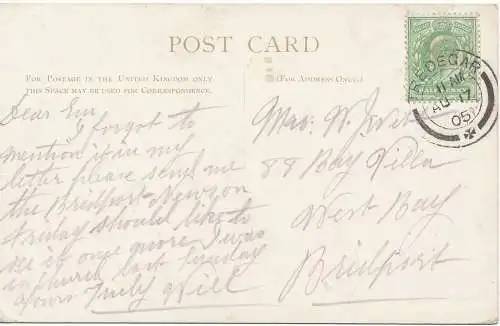 POST CARD
FOR POSTAGE IN THE UNITED KINGDOM ONLY
THIS SPACE MAY BE USED FOR CORRESPONDENCE.
(FOR ADDRESS ONLY.)
HALFPENNY
TREDEGAR
AU 17
05
Dear Em
I forgot to
mention it in my
letter please send me
the Bridport News on
Friday should like to
see it once more I was
in church last Sunday
Yours Truly Will
Mrs. W.
88 Bay Villa
West Bay
Bridport